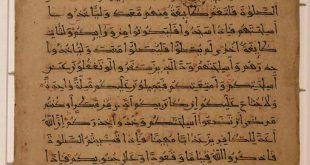 الصلوة فلتقم طائفة منهم معك وليأخذوا
أسلحتهم فإذا سجدوا فليكونوا من ورائكم ولتأت
طائفة أخرى لم يصلوا فليصلوا معك وليأخذوا
حذرهم وأسلحتهم ود الذين كفروا لو تغفلون عن
أسلحتكم وأمتعتكم فيميلون عليكم ميلة واحدة
ولا جناح عليكم إن كان بكم أذى من مطر أو كنتم
مرضى أن تضعوا أسلحتكم وخذوا حذركم إن الله
أعد للكفرين عذابا مهينا فإذا قضيتم الصلوة
فاذكروا الله قياما وقعودا وعلى جنوبكم فإذا